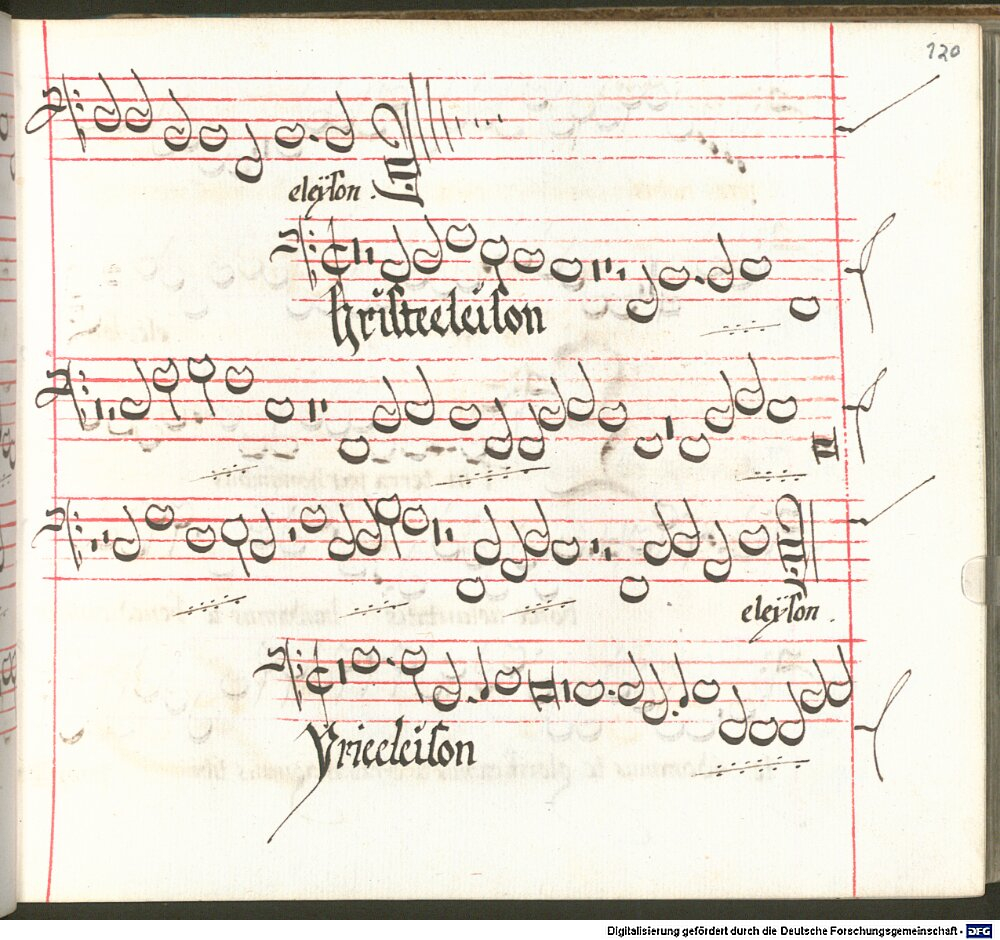 120
eleÿson .
hristeeleison
eleÿson .
Yrieeleison
Digitalisierung gefördert durch die Deutsche Forschungsgemeinschaft - DFG